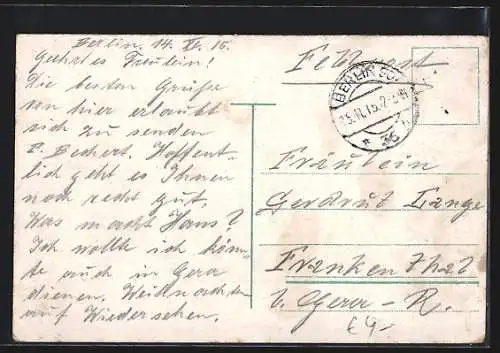 Berlin, 14. XI. 15.
Geehrtes Freulein!
Die besten Grüße
von hier erlaubt
sich zu senden
E. Bechert. Hoffent-
lich geht es Ihnen
noch recht gut.
Was macht Hans?
Ich wollte ich könn-
te auch in Gera
dienen. Weihnachten
auf Wiedersehen.
Feldpost
BERLIN SO.
15.11.15.
* 36
Fräulein
Gerdrut Lange
Frankenthal
b. Gera-R.
£4-